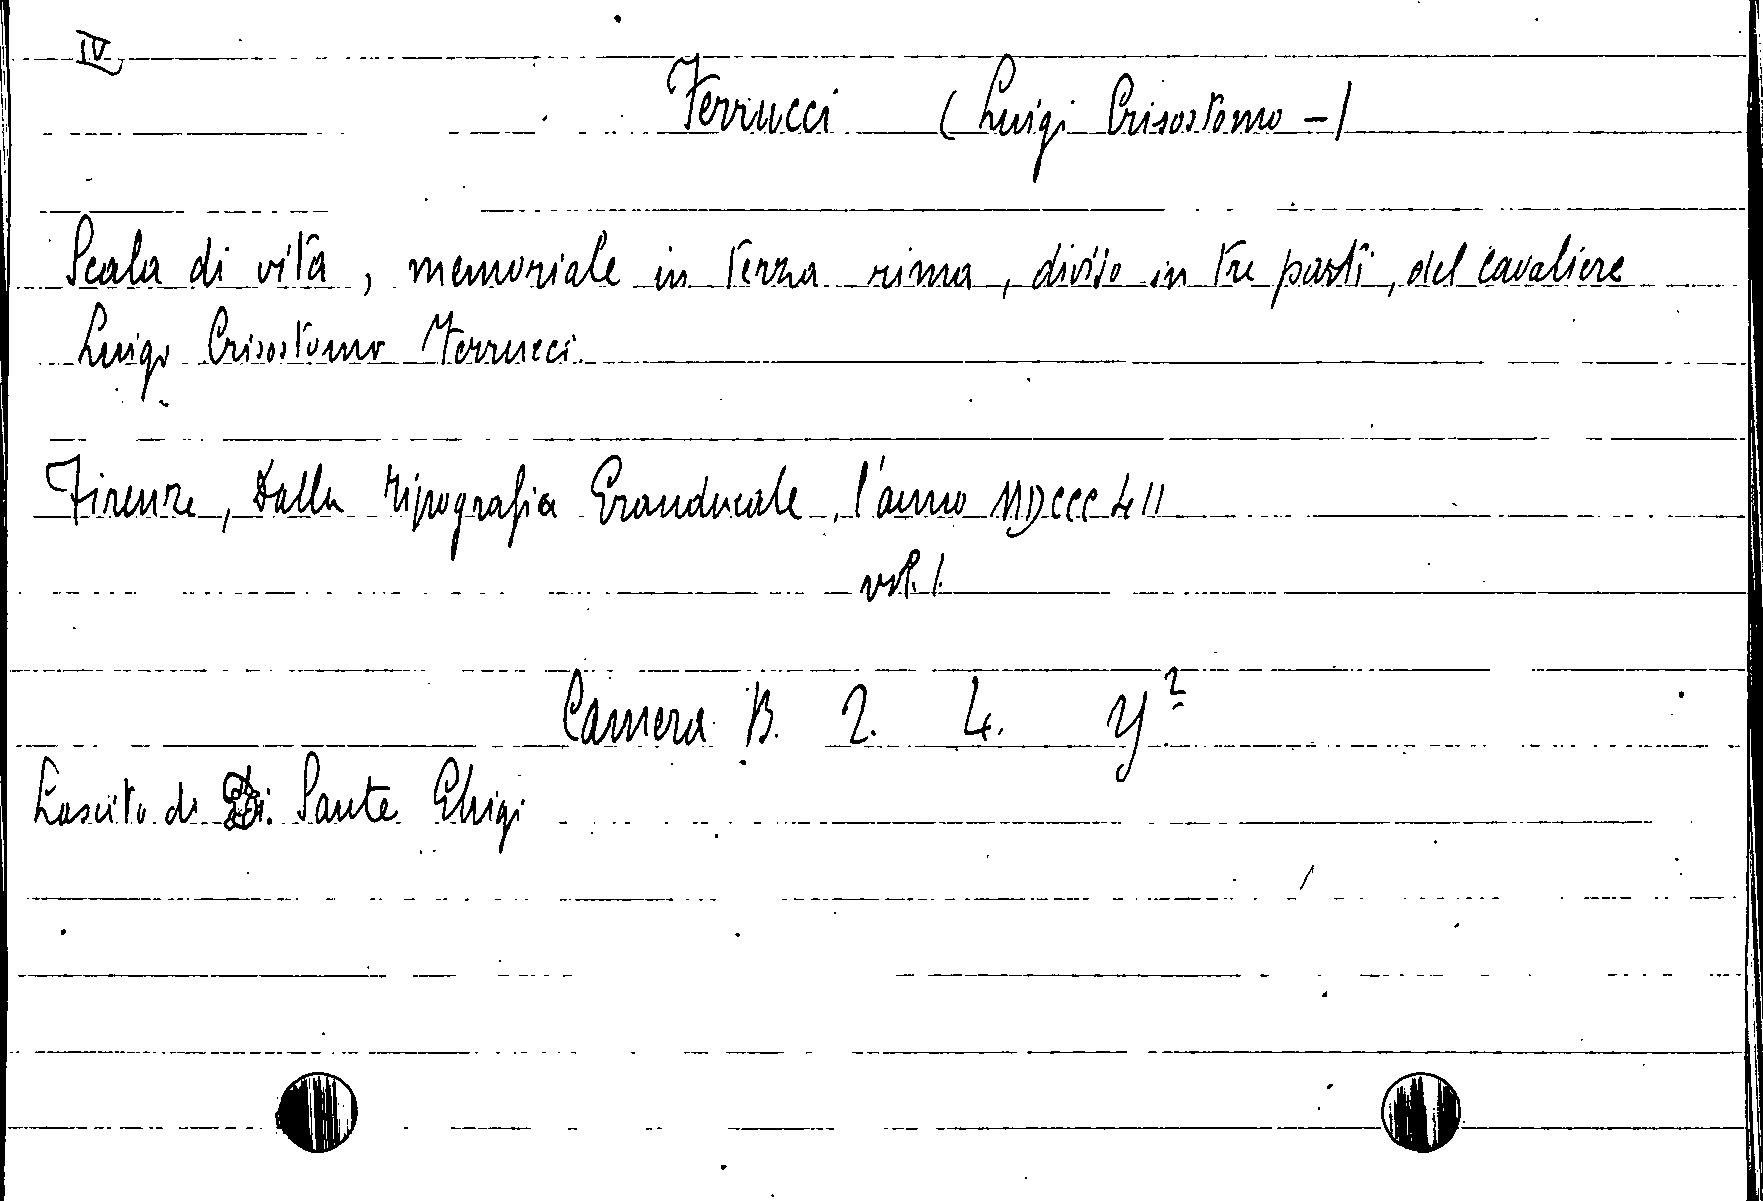 IV
Ferrucci (Luigi Crisostomo -)
Scala di vita, memoriale in terza rima, diviso in tre parti, del cavaliere
Luigi Crisostomo Ferrucci.
Firenze, Dalla tipografia Granducale, l'anno MDCCCLII
vol. 1.
Camera B. 2. 4. y²
Lascito di Di. Sante Ghigi